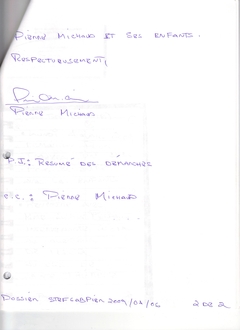 PIERRE MICHAUD ET SES ENFANTS.
RESPECTUEUSEMENT,
PIERRE MICHAUD
P.J.: RESUMÉ DES DÉMARCHES
c.c.: PIERRE MICHAUD
DOSSIER 2009/06/06 2 DE 2